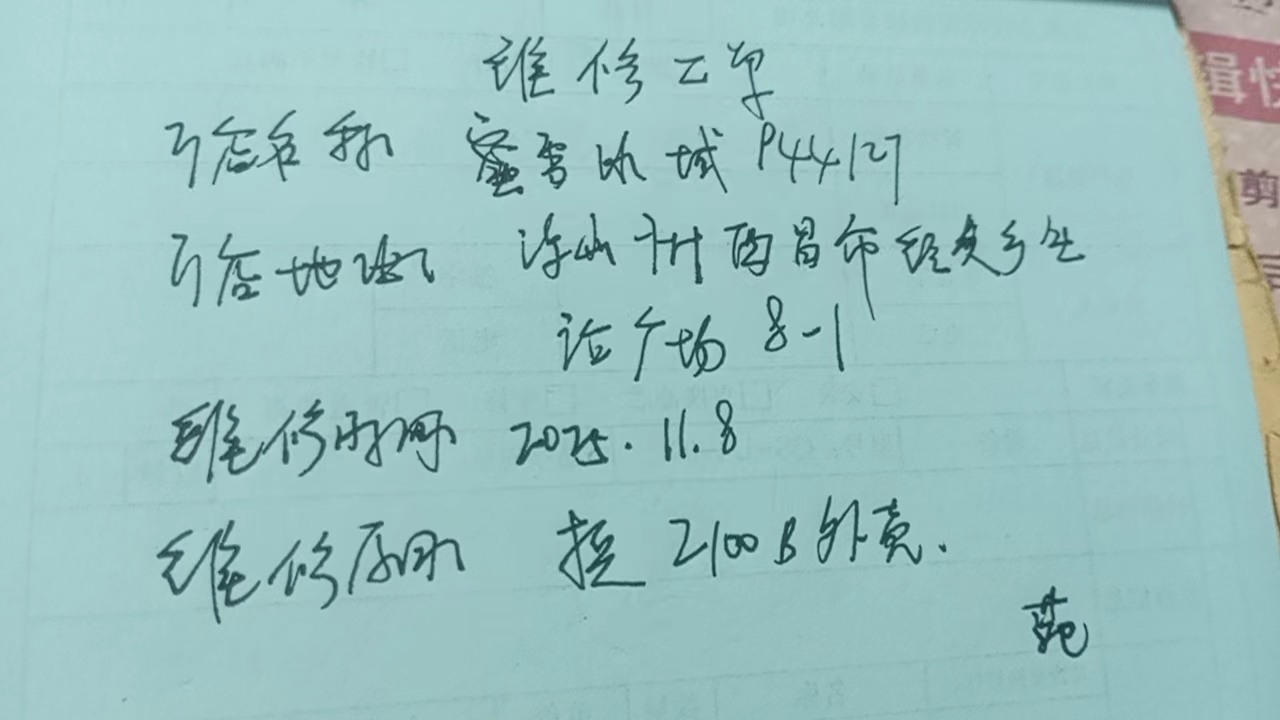 维修工单
门店名称 蜜雪冰城 P44127
门店地址 凉山州西昌市经久乡生
活广场 8-1
维修时间 2025.11.8
维修原因 换 2100B 外壳.
辑快
剪